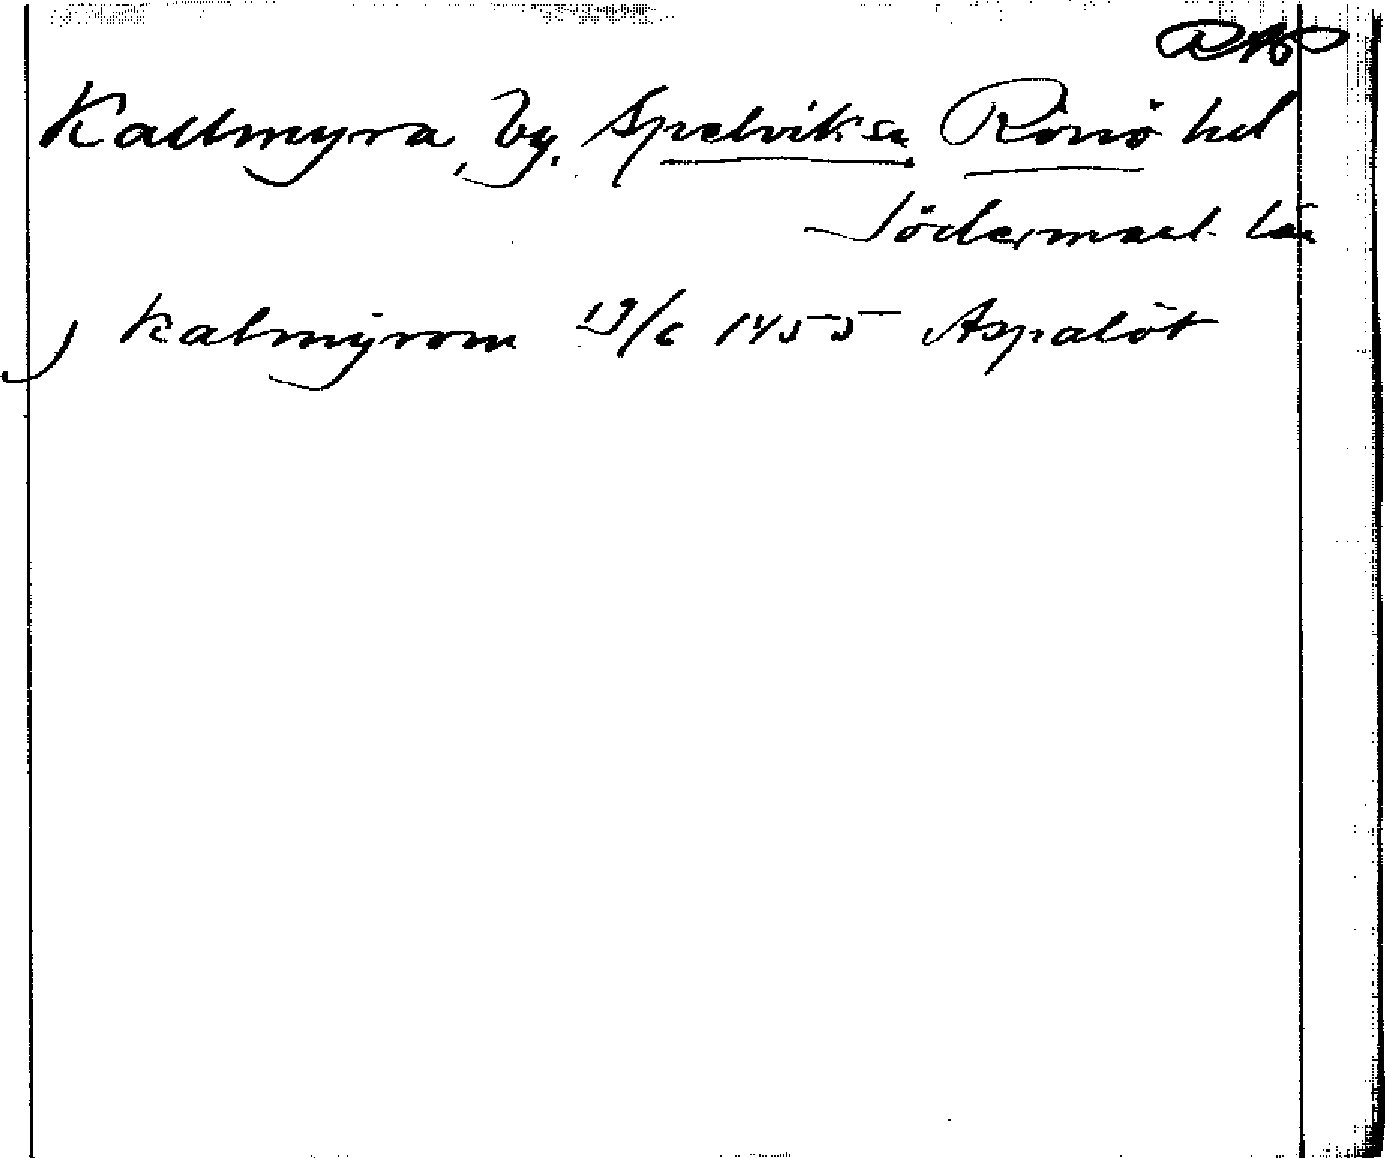 Kallmyra, by, Spelvik sn Rönö hd
Södermanl. län
j Kalmyrom 19/6 1455 Aspalöt